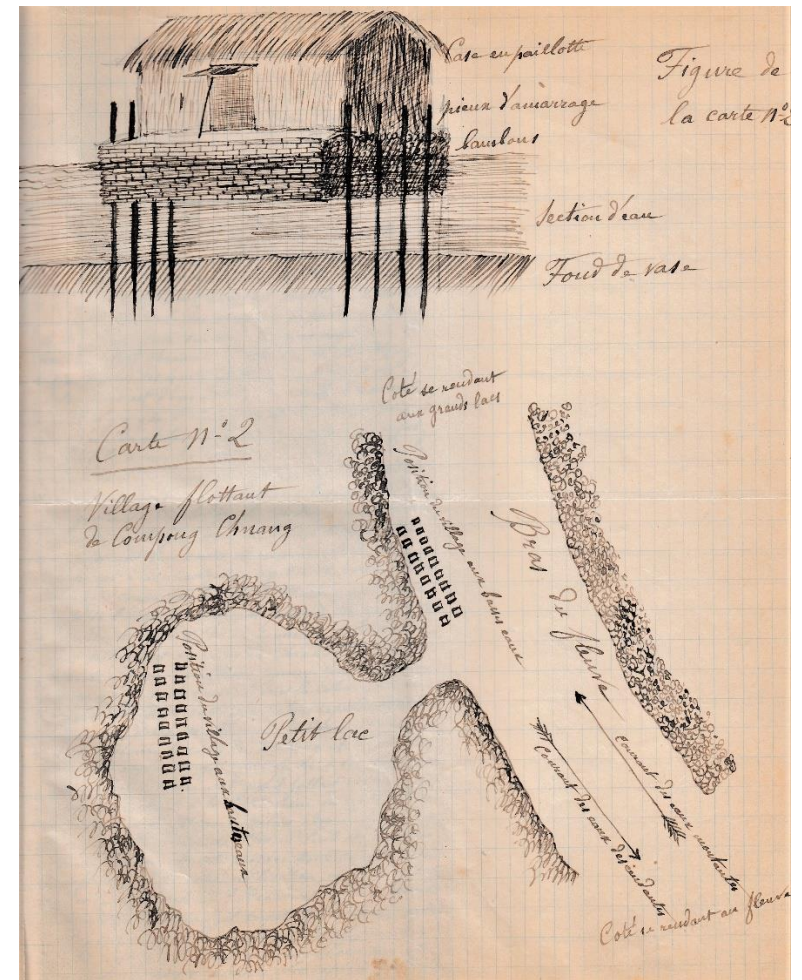 Case en paillotte
pieux d'amarrage
bambous
Section d'eau
Fond de vase
Figure de
la carte N°2
Carte N°2
Village flottant
de Compong Chnang
Coté se rendant
aux grands lacs
Position du village aux basses eaux
Bras du fleuve
Position du village aux hautes eaux
Petit lac
courant des eaux montantes
Courant des eaux descendantes
Coté se rendant au fleuve